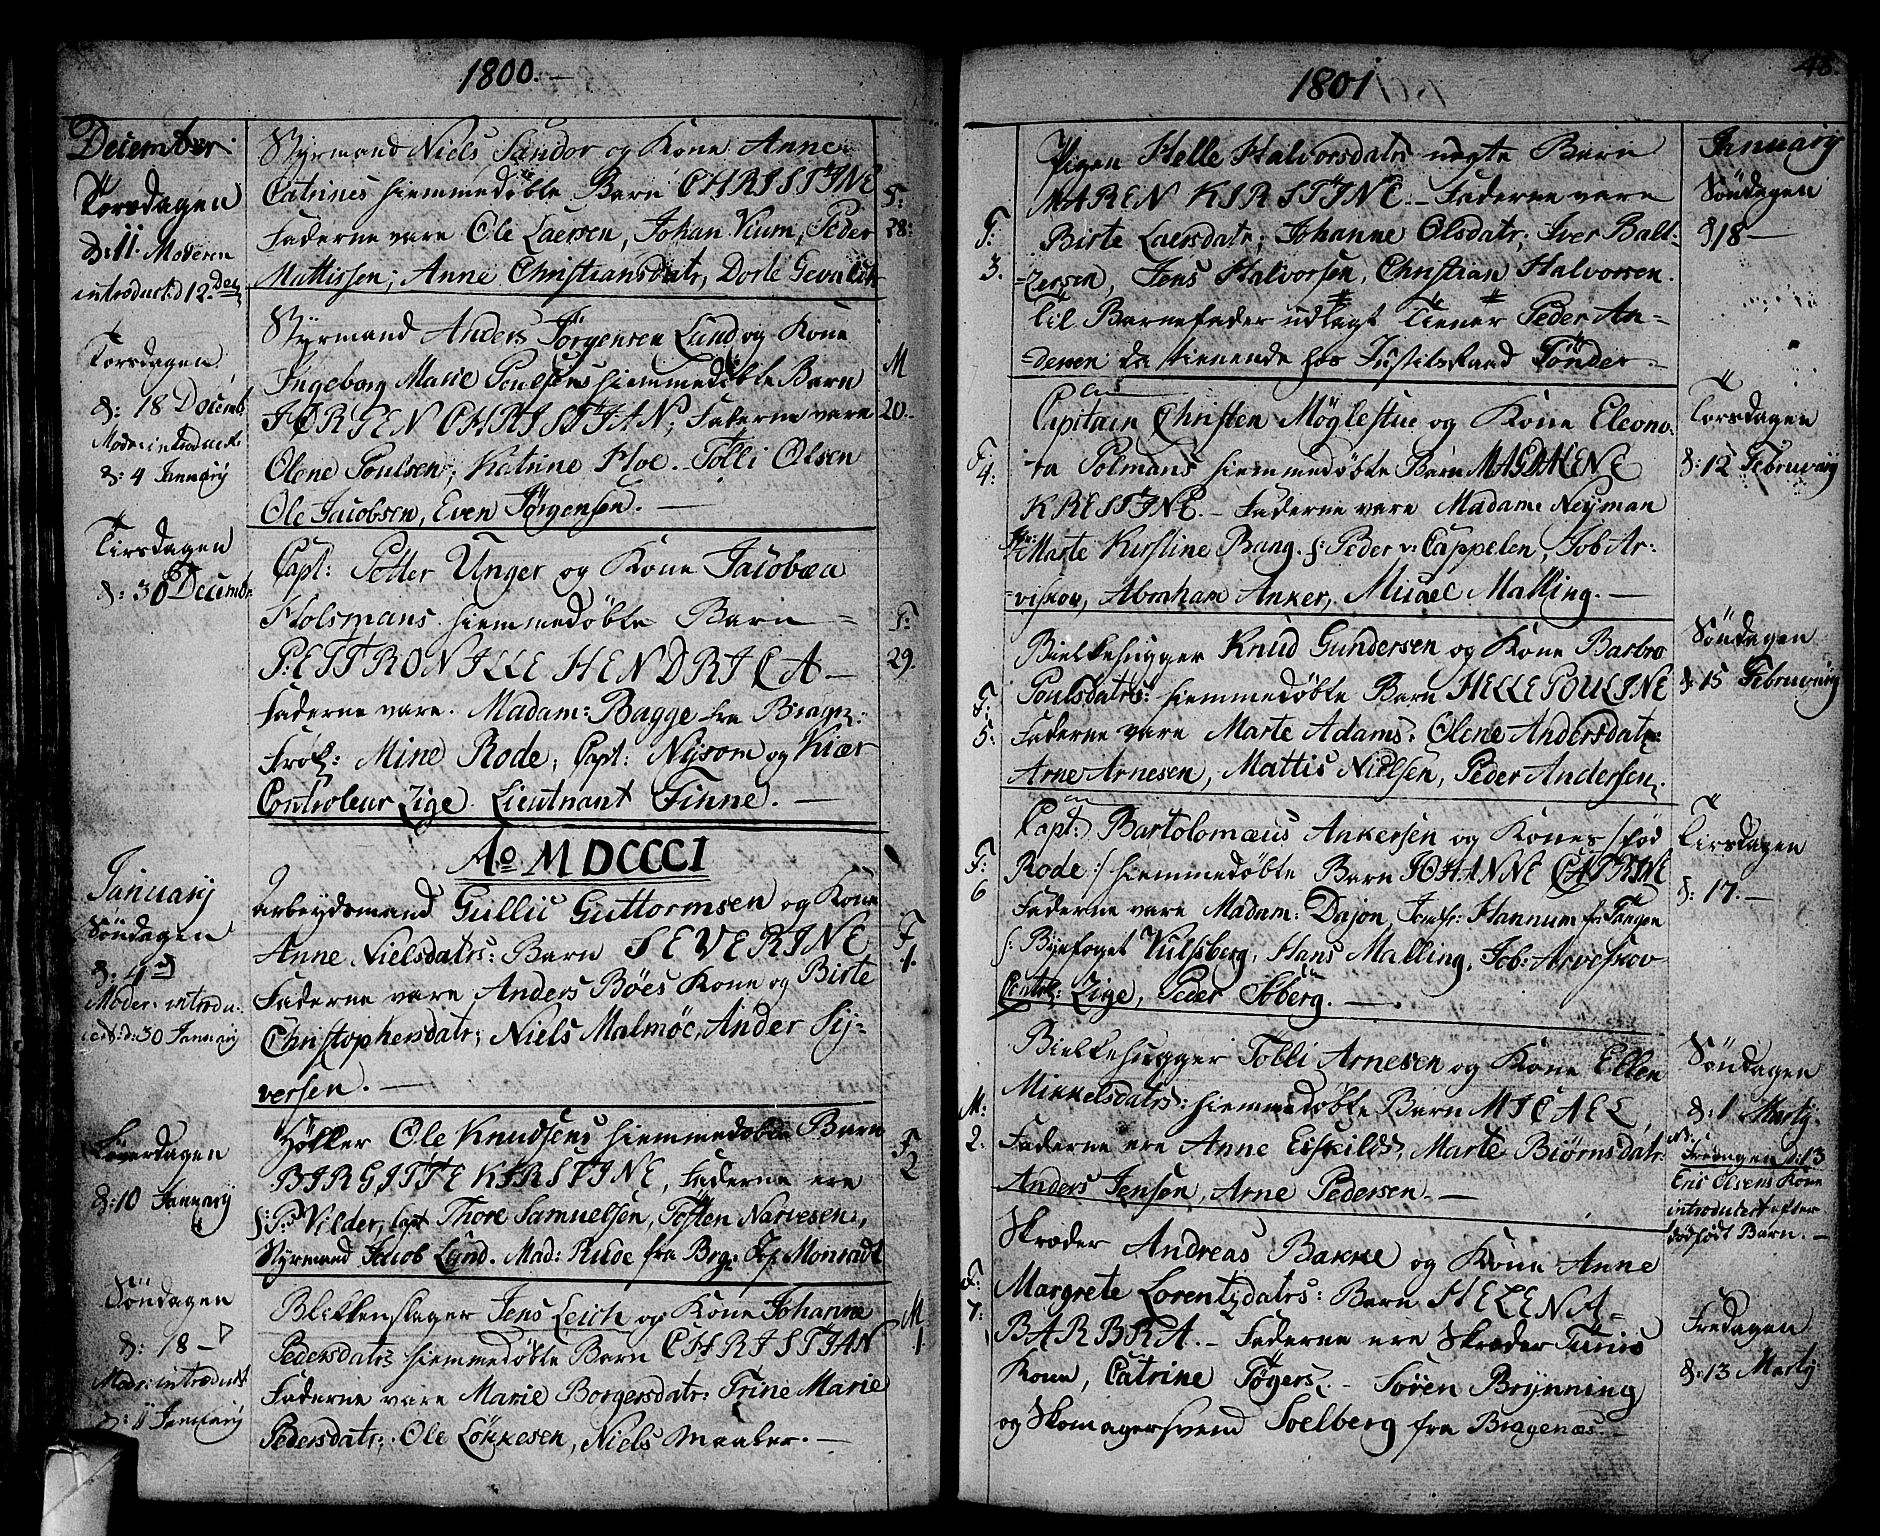 1800.
December
Torsdagen
d: 11. Moderen
introduct: d 12. Dec
Styrmand Niels Sandor og Kone Anne
Catrines hiemmedøbte Barn CHRISTINE
Faderne vare Ole Laersen, Johan Vium, Peder
Mattissen; Anne Christiansdatr, Dorte
28:
Torsdagen
d: 18 Decemb
Moder: introduct
d: 4 January
Styrmand Anders Jørgensen Lund og Kone
Ingeborg Marie Poulsens hiemmedøbte Barn
JØRGEN CHRISTIAN, Faderne vare
Olene Poulsen, Katrine Hoe. Tolli Olsen
Ole Jacobsen, Even Jørgensen. —
M
20.
Tirsdagen
d: 30 Decembr
Capt: Petter Unger og Kone Jacobæa
Holsmans hiemmedøbte Barn
PETTRONILLE HENDRICA —
Faderne vare. Madam: Bagge fra Bragn:
Frøk: Mine Rode, Capt: Nysom og Kiær
Controleur Zige. Lieutnant Finne. —
F:
29.
Ao MDCCCI
January
Søndagen
d: 4
Moder: introdu-
ict: d: 30 January
Arbeydsmand Gullic Guttormsen og Kone
Anne Nielsdatrs: Barn SEVERINE
Faderne vare Anders Böes Kone og Birte
Christophersdatr; Niels Malmöe, Ander Sy-
versen. —
F
1.
Löverdagen
d: 10 January
Höller Ole Knudsens hiemmedøbte Barn
BIRGITTE KIRSTINE, Faderne ere
P: Vilder, Thore Samuelsen, Tosten Narvesen,
Styrmand Jacob Lund. Mad: Rude fra Brg: Jof Monradt
F
2
Søndagen
d: 18 —
Mod: introduct
d: January
Blikkenslager Jens Leich og Kone Johanne
Pedersdatrs hiemmedøbte Barn CHRISTIAN
Faderne vare Marie Borgersdatr: Trine Marie
Pedersdatr: Ole Lökkesen, Niels Maaler. —
M
1.
1801
48.
January
Søndagen
d 18 —
F:
3.
Pigen Helle Halvorsdatrs uægte Barn
MAREN KIRSTINE. — Faderne vare
Birte Laersdatr; Johanne Olsdatr; Iver Balt-
zersen, Jens Halvorsen, Christian Halvorsen.
Til Barnefader udlagt Tiener Peder An-
dersen da tienende hos Justitsraad Tönder —
Torsdagen
d: 12 February
F.
4.
Capitain Christen Möglestue og Kone Eleono-
ra Polmans hiemmedøbte Barn MAGDALENE
KRESTINE. — Faderne vare Madame Neyman
Marte Kirstine Bang. Peder v: Cappelen, Job Ar-
viskov, Abraham Anker, Micael Malling. —
Søndagen
d: 15 February
F.
5.
Bielkehugger Knud Gundersen og Kone Barbro
Poulsdatrs: hiemmedøbte Barn HELLE POULINE
Faderne vare Marte Adams: Olene Andersdatr:
Arne Arnesen, Mattis Nielsen, Peder Andersen.
Tirsdagen
d: 17. —
F:
6
Capt: Bartolomæus Ankersen og Kones /: fød
Rode :/ hiemmedøbte Barn JOHANNE CATRINE
Faderne vare Madam: Dajon, Jomf: Hannum fr Tangen
Byefoget Kulsberg, Hans Malling, Job: Arveskov
Contrl: Zige, Peder Soberg. —
Søndagen
d: 1 Marty.
M:
2.
Bielkehugger Tolli Arnesen og Kone Ellen
Mikkelsdatrs: hiemmedøbte Barn MICAEL,
Faderne ere Anne Eskilds, Marte Biörnsdatr
Anders Jensen, Arne Pedersen. —
Fredagen d: 13
Eric Olsens Kone
introducert efter
dødfødt Barn. —
Fredagen
d: 13 Marty
F.
7.
Skræder Andreas Bakke og Kone Anne
Margrete Lorentzdatrs: Barn HELENA
BARBRA. — Faderne ere Skræder Tunis
Kone, Catrine Tøgers. — Søren Brynning
og Skomagersvend Soelberg fra Bragenæs. —